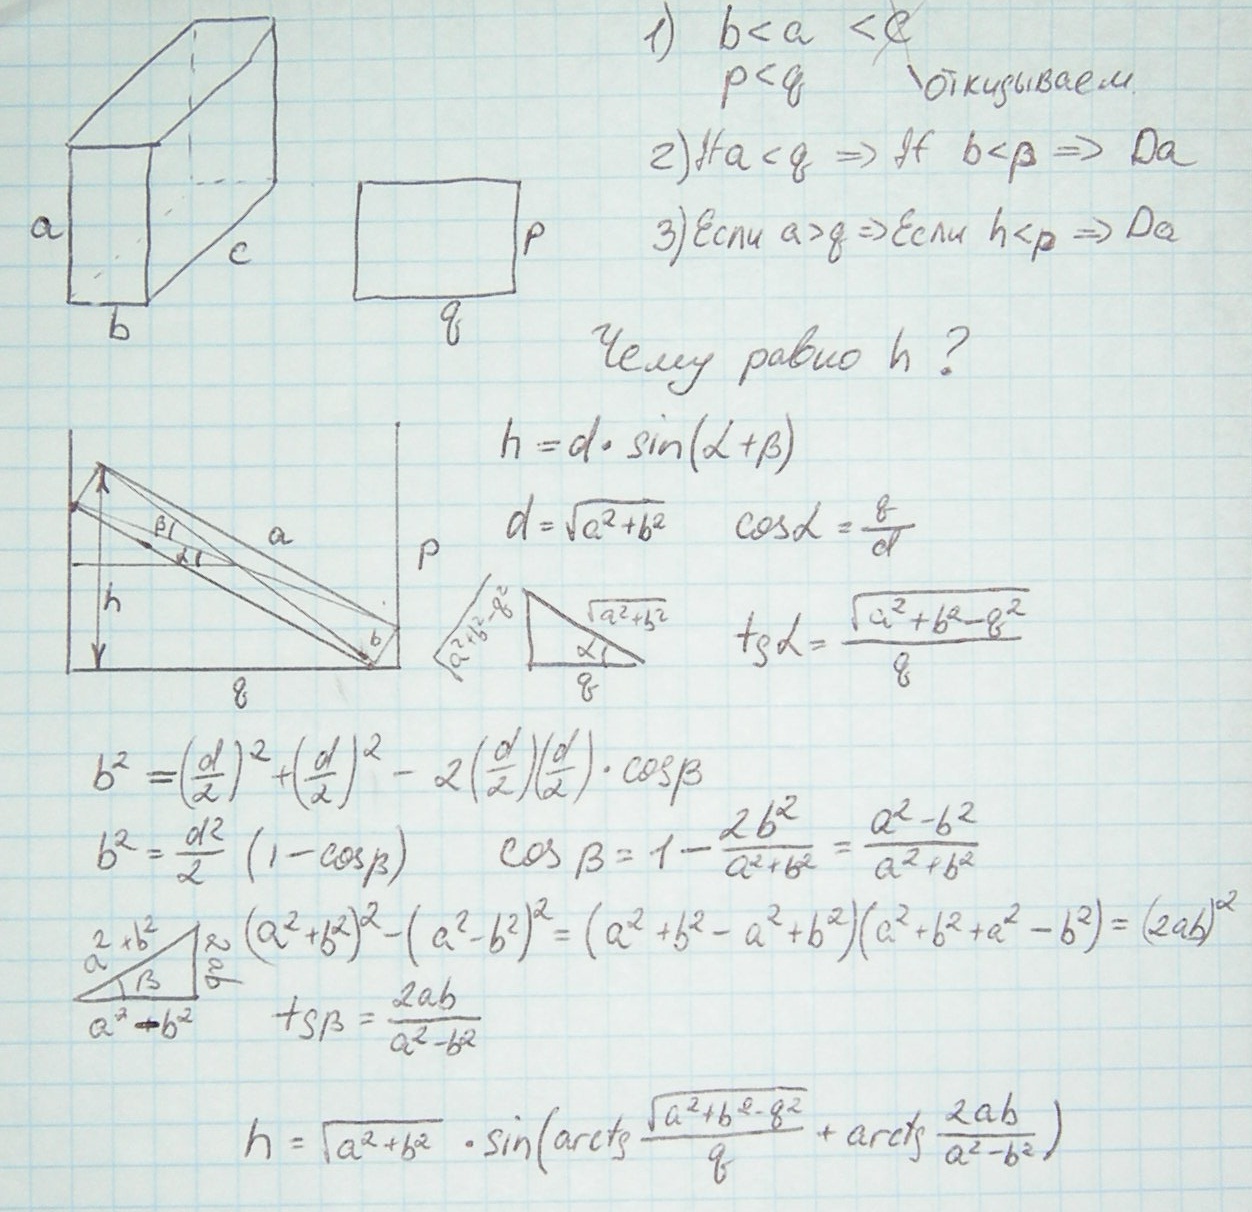 1) b < a < c
p < q \откидываем.
2) If a < q => If b < p => Da
3) Если a > q => Если h < p => Da
a
b
c
p
q
Чему равно h ?
h = d · sin(α + β)
d = √(a² + b²) cosα = q/d
a
β
α
h
b
p
q
√(a² + b² - q²)
√(a² + b²)
α
q
tgα = √(a² + b² - q²)/q
b² = (d/2)² + (d/2)² - 2(d/2)(d/2) · cosβ
b² = d²/2 (1 - cosβ) cosβ = 1 - 2b²/(a² + b²) = (a² - b²)/(a² + b²)
a² + b²
β
2ab
a² - b²
(a² + b²)² - (a² - b²)² = (a² + b² - a² + b²)(a² + b² + a² - b²) = (2ab)²
tgβ = 2ab/(a² - b²)
h = √(a² + b²) · sin(arctg √(a² + b² - q²)/q + arctg 2ab/(a² - b²))